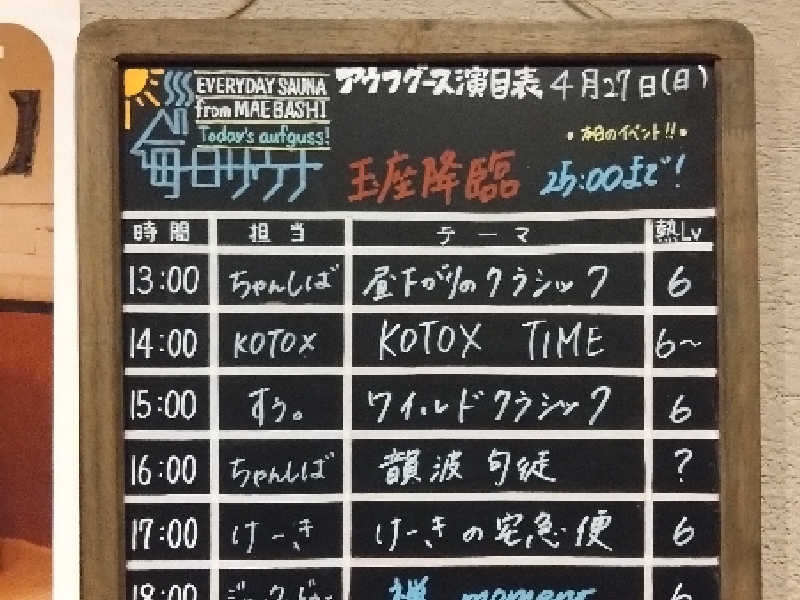 EVERYDAY SAUNA
from MAEBASHI
Today's aufguss!
毎日サウナ
アウフグース演目表 4月27日(日)
•本日のイベント!!•
玉座降臨 25:00まで!
時間 担当 テーマ 熱Lv
13:00 ちゃんしば 昼下がりのクラシック 6
14:00 KOTOX KOTOX TIME 6〜
15:00 すぅ。 ワイルドクラシック 6
16:00 ちゃんしば 韻波句徒 ?
17:00 けーき けーきの宅急便 6
18:00 moment 6